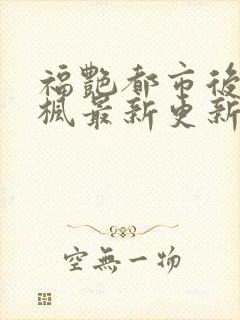 福艷都市後
楓最新更新
空無一物